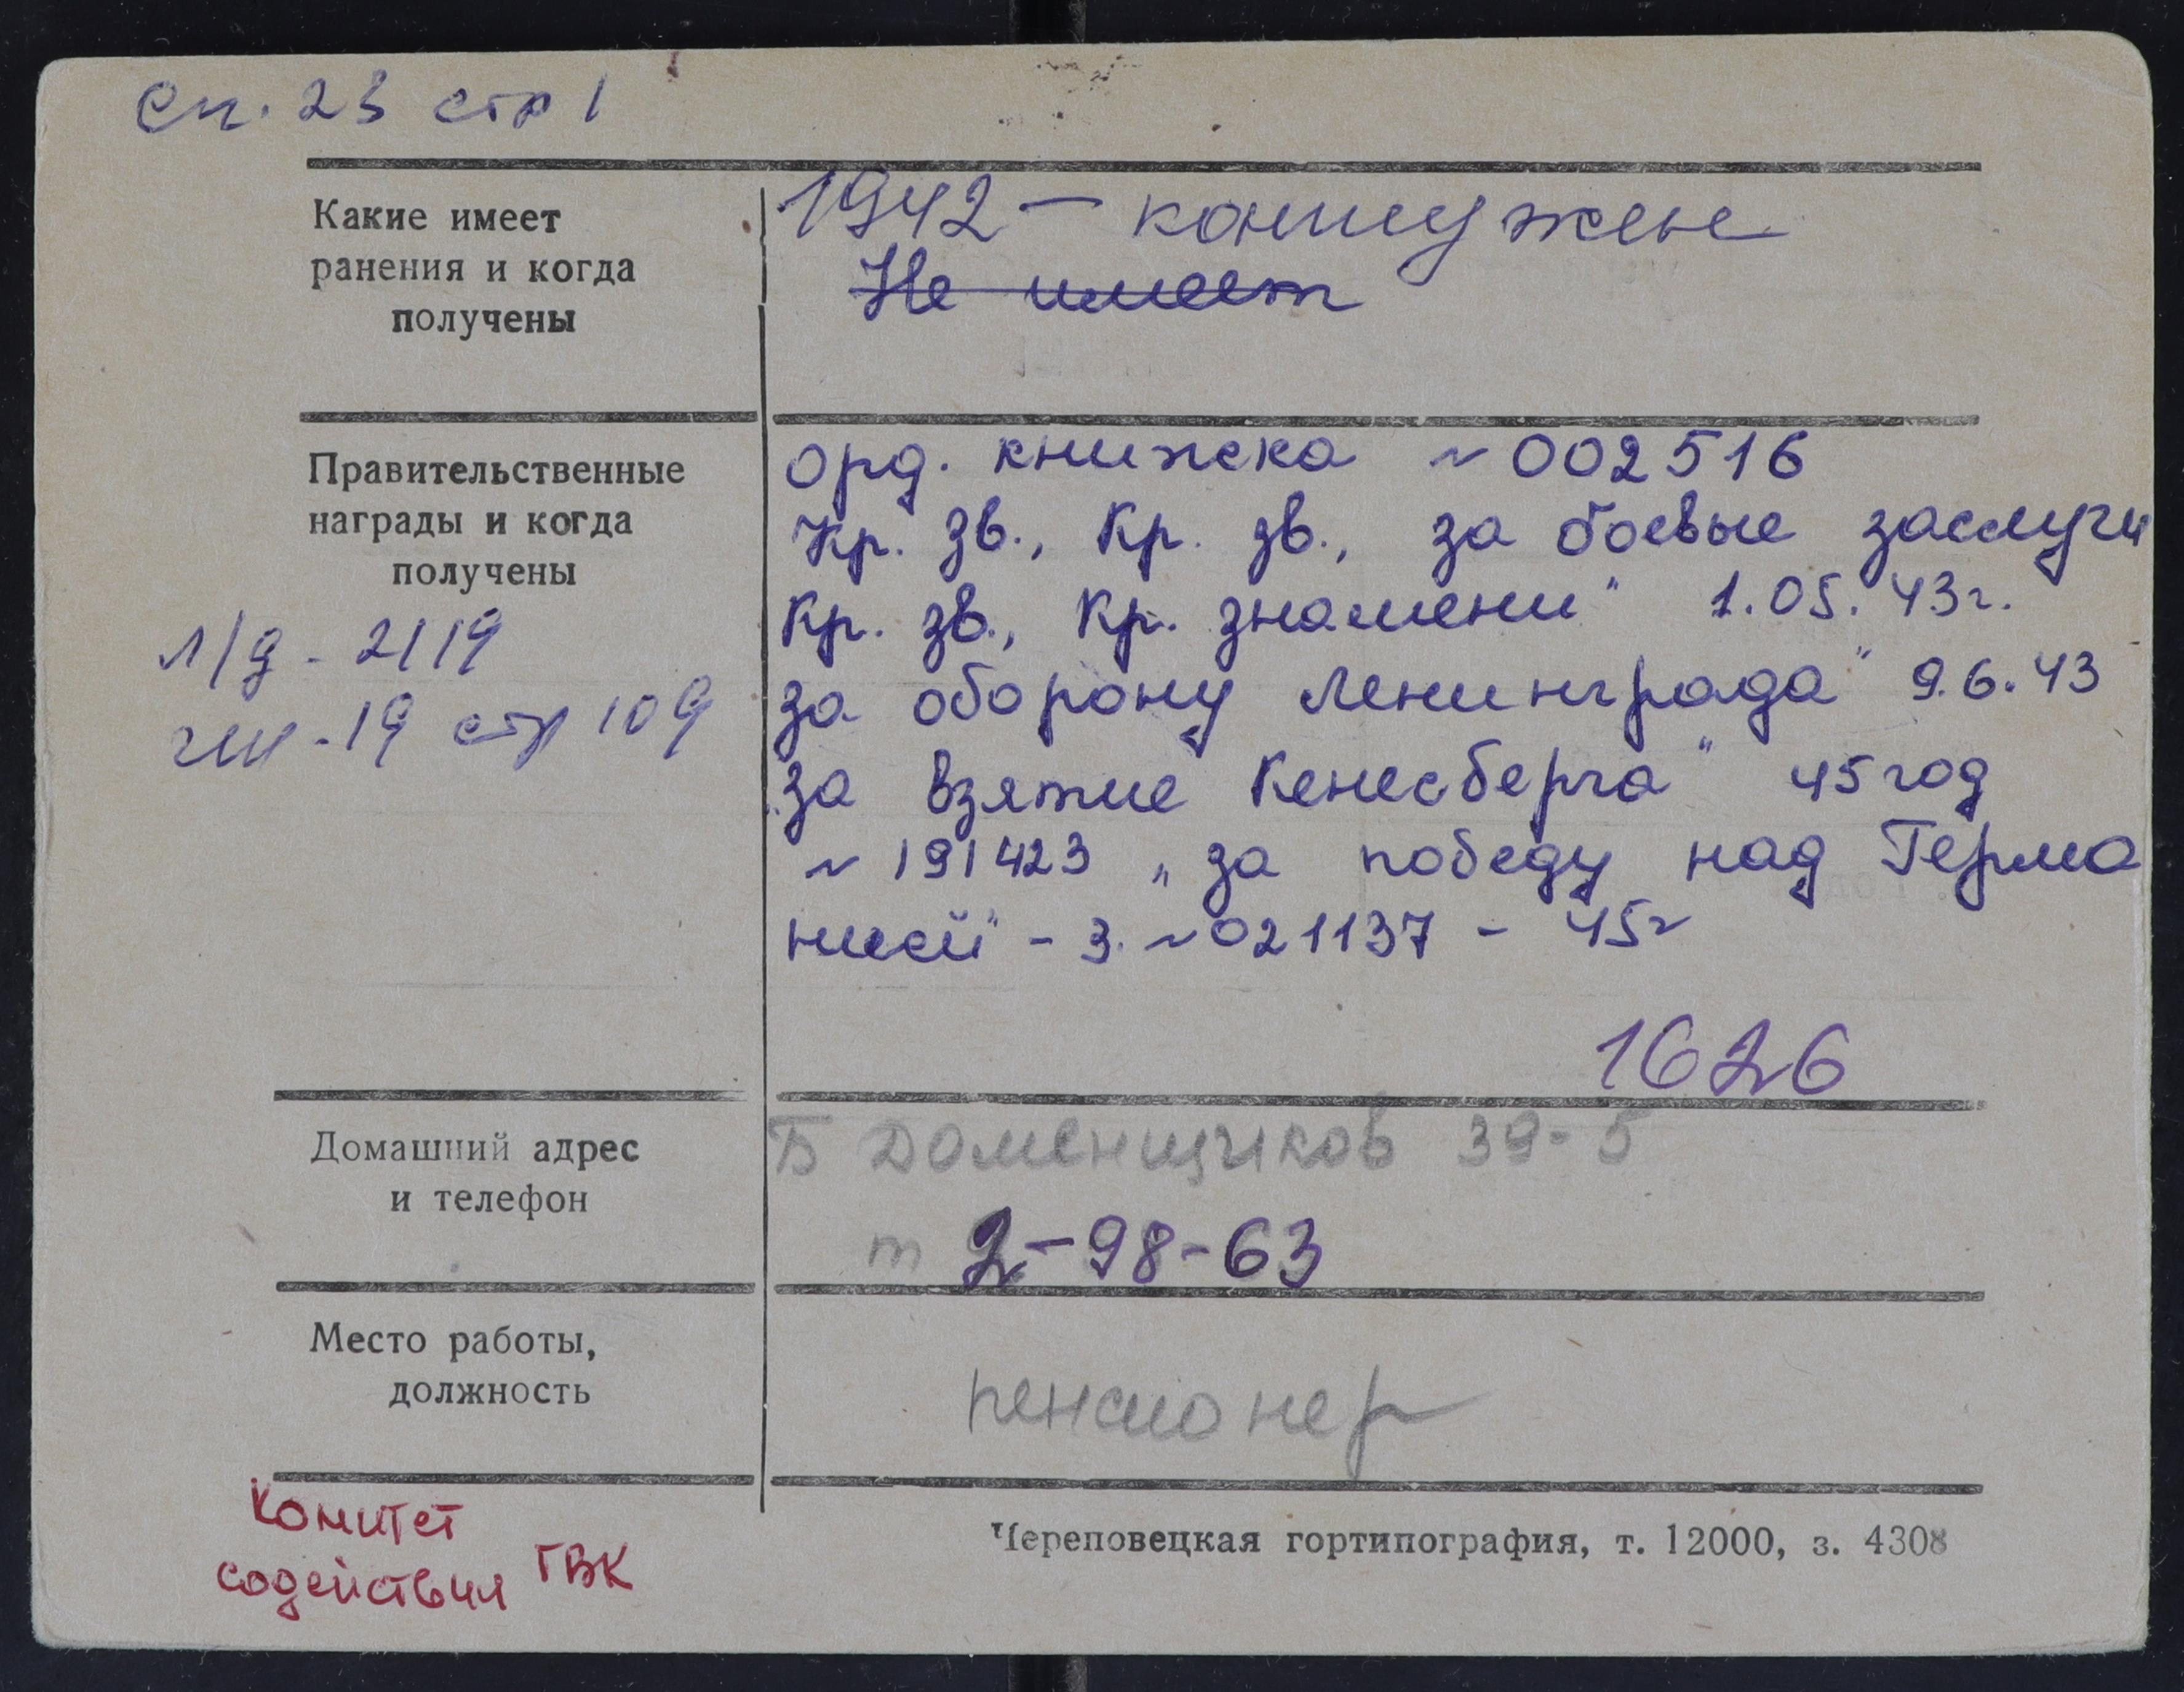 сп. 23 стр 1
Какие имеет
ранения и когда
получены
1942 – контужен
Не имеет
Правительственные
награды и когда
получены
л/д - 2119
стр 109
орд. книжка № 002516
Кр. зв., Кр. зв., за боевые заслуги
Кр. зв., Кр. знамени" 1.05.43г.
за оборону Ленинграда" 9.6.43
"за взятие Кенесберга" 45 год
№ 191423 „за победу над Герма
нией" - З. №021137 - 45г
1626
Домашний адрес
и телефон
Б Доменщиков 39-5
т 2-98-63
Место работы,
должность
пенсионер
Комитет
содействия ГВК
Череповецкая гортипография, т. 12000, з. 4308